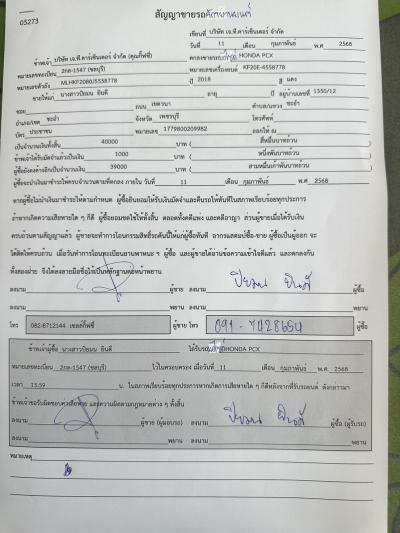 สัญญาขายรถ
05273
เขียนที่ บริษัท เจ.ที.คาร์เซ็นเตอร์ จำกัด
วันที่ 11 เดือน กุมภาพันธ์ พ.ศ 2568
ข้าพเจ้า บริษัท เจ.ที.คาร์เซ็นเตอร์ จำกัด (คุณกิ๊ฟซี่) ตกลงขายรถ HONDA PCX
หมายเลขทะเบียน 2กล-1547 (ชลบุรี) หมายเลขเครื่องยนต์ KF20E-4558778
หมายเลขตัวถัง MLHKF2080J5558778 ปี 2018 สี แดง
ขายให้แก่ นางสาวปิยมน ยินดี อายุ ปี อยู่บ้านเลขที่ 1350/12
ซอย ถนน เชตวนา ตำบล/แขวง ชะอำ
อำเภอ/เขต ชะอำ จังหวัด เพชรบุรี โทรศัพท์
บัตร ประชาชน หมายเลข 1779800209982 ออกให้ ณ
เป็นจำนวนเงินทั้งสิ้น 40000 บาท ( สี่หมื่นบาทถ้วน )
ข้าพเจ้าได้รับมัดจำแล้วเป็นเงิน 1000 บาท ( หนึ่งพันบาทถ้วน )
ผู้ซื้อยังคงค้างอีกเป็นจำนวนเงิน 39000 บาท ( สามหมื่นเก้าพันบาทถ้วน )
ผู้ซื้อจะนำเงินมาชำระให้ครบจำนวนตามที่ตกลง ภายใน วันที่ 11 เดือน กุมภาพันธ์ พ.ศ 2568
หากผู้ซื้อไม่นำเงินมาชำระให้ตามกำหนด ผู้ซื้อยินยอมให้ริบเงินมัดจำและคืนรถให้ทันทีในสภาพเรียบร้อยทุกประการ
ถ้าหากเกิดความเสียหายใด ๆ ก็ดี ผู้ซื้อยอมชดใช้ให้ทั้งสิ้น ตลอดทั้งคดีแพ่ง และคดีอาญา ส่วนผู้ขายเมื่อได้รับเงิน
ครบถ้วนตามสัญญาแล้ว ผู้ขายจะทำการโอนกรรมสิทธิ์รถคันนี้ให้แก่ผู้ซื้อทันที อากรแสตมป์ผู้ซื้อ-ขาย ผู้ซื้อเป็นผู้ออก จะ
ได้ติดให้ครบถ้วน เมื่อวันทำการโอนทะเบียนยานพาหนะ ฯ ผู้ซื้อ และผู้ขายได้อ่านข้อความเข้าใจดีแล้ว และตกลงกัน
ทั้งสองฝ่าย จึงได้ลงลายมือชื่อไว้เป็นหลักฐานต่อหน้าพยาน
ลงนาม ผู้ขาย ลงนาม ปิยมน ยินดี ผู้ซื้อ
ลงนาม พยาน ลงนาม พยาน
โทร 082-8712144 เซลล์กิ๊ฟซี่ ผู้ขาย โทร 091-7428654 ผู้ซื้อ
ข้าพเจ้าผู้ซื้อ นางสาวปิยมน ยินดี ได้รับรถ HONDA PCX
หมายเลขทะเบียน 2กล-1547 (ชลบุรี) ไว้ในครอบครอง เมื่อวันที่ 11 เดือน กุมภาพันธ์ พ.ศ. 2568
เวลา 13.59 น. ในสภาพเรียบร้อยทุกประการหากเกิดการเสียหายใด ๆ ก็ดีหลังจากที่รับรถยนต์ ดังกล่าวมา
ข้าพเจ้าขอรับผิดชอบความเสียหาย และความผิดตามกฎหมายต่าง ๆ ทั้งสิ้น
ลงนาม ผู้ขาย (ผู้มอบรถ) ลงนาม ปิยมน ยินดี ผู้ซื้อ (ผู้รับรถ)
ลงนาม พยาน ลงนาม พยาน
หมายเหตุ